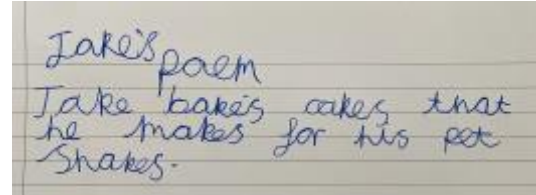 Jake's
poem
Jake bakes cakes that
he makes for his pet
Snakes.